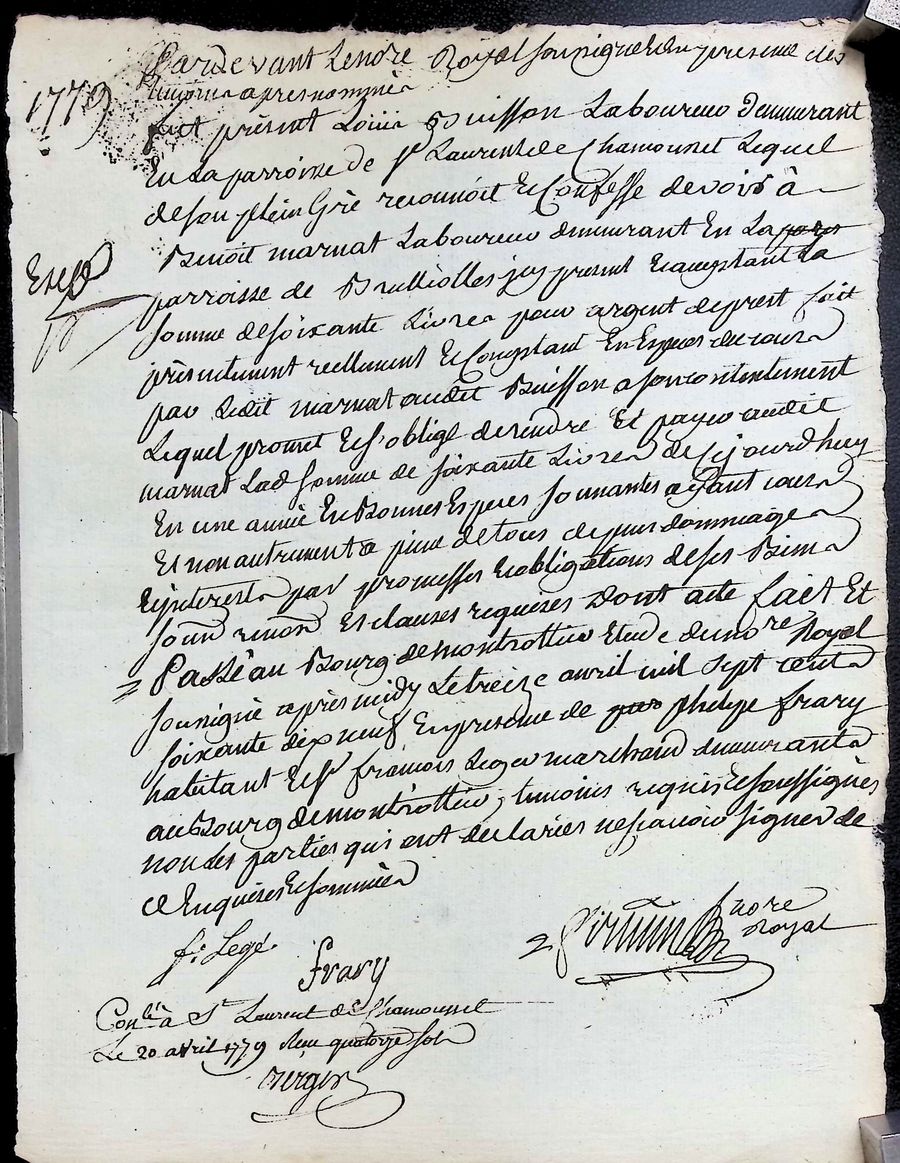 Pardevant Le no.re Royal soussigné et en presence des
temoins apres nommés
1779
fut présent Louis Buisson Laboureur demeurant
En La parroisse de St Laurent de Chamousset Lequel
de son plein Gré reconnoit et Confesse devoir à
Benoit marnat Laboureur demeurant En La
parroisse de Brulliolles icy present Et acceptant La
Exep.d
somme de soixante Livres pour argent de prest fait
présentement reellement et Comptant En Especes de cours
par Ledit marnat audit Buisson a son contentement
Lequel promet et s'oblige de rendre Et payer audit
marnat Lad somme de soixante Livres de cejourdhuy
En une année En Bonnes Especes sonnantes ayant cours
Et non autrement a peine de tous depens dommages
Et interests par promesses et obligations de ses Biens
soum renon Et clauses requises Dont acte fait Et
Passé au Bourg de montrottier Etude du no.re Royal
soussigné après midy Le treize avril mil sept cents
soixante dix neuf En presence de phelipe frary
habitant et Sr françois Leger marchand demeurants
au Bourg de montrottier, temoins requis Et soussignés
non les parties qui ont declarées ne sçavoir signer de
ce Enquéses Et sommées
f.s Leger
frary
no.re
Royal
Con.lé à St Laurent de Chamousset
Le 20 avril 1779 Reçu quatorze sols